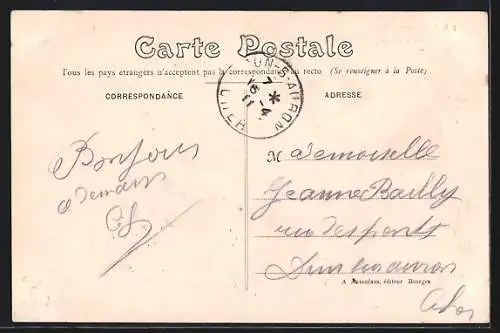 Carte Postale
Tous les pays étrangers n'acceptent pas la correspondance au recto (Se renseigner à la Poste)
CORRESPONDANCE
ADRESSE
DUN-S-AURON
CHER
7 - 4
11
Bonjour
a demain
Mademoiselle
Jeanne Bailly
rue des ponts
Dun sur auron
A. Auxenfans, éditeur Bourges
Cher